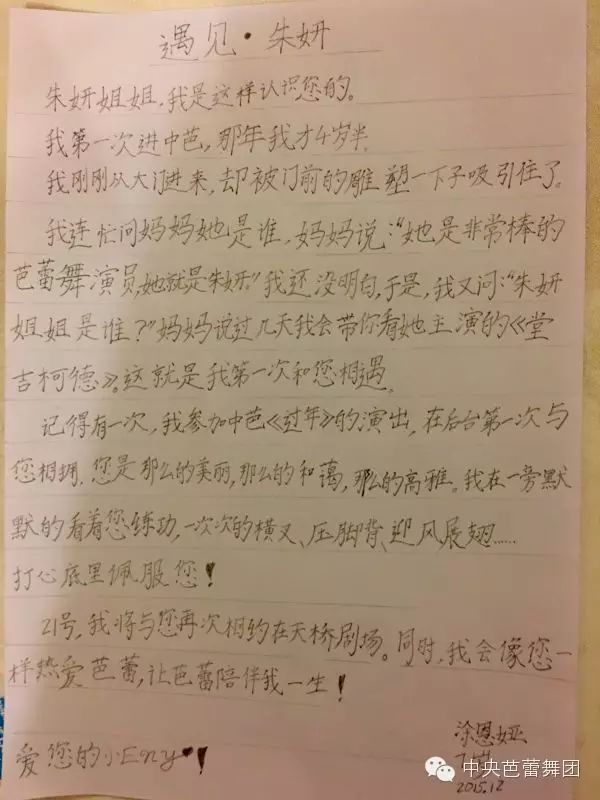 遇见·朱妍
朱妍姐姐,我是这样认识您的。
我第一次进中芭,那年我才4岁半.
我刚刚从大门进来,却被门前的雕塑一下子吸引住了。
我连忙问妈妈她是谁,妈妈说:“她是非常棒的
芭蕾舞演员,她就是朱妍。”我还没明白,于是,我又问:“朱妍
姐姐是谁?”妈妈说过几天我会带你看她主演的《堂
吉柯德》。这就是我第一次和您相遇.
记得有一次,我参加中芭《过年》的演出,在后台第一次与
您相拥,您是那么的美丽,那么的和蔼,那么的高雅。我在一旁默
默的看着您练功,一次次的横叉、压脚背、迎风展翅……
打心底里佩服您!
21号,我将与您再次相约在天桥剧场。同时,我会像您一
样热爱芭蕾,让芭蕾陪伴我一生!
爱您的小Eny!
涂恩娅
2015.12
中央芭蕾舞团